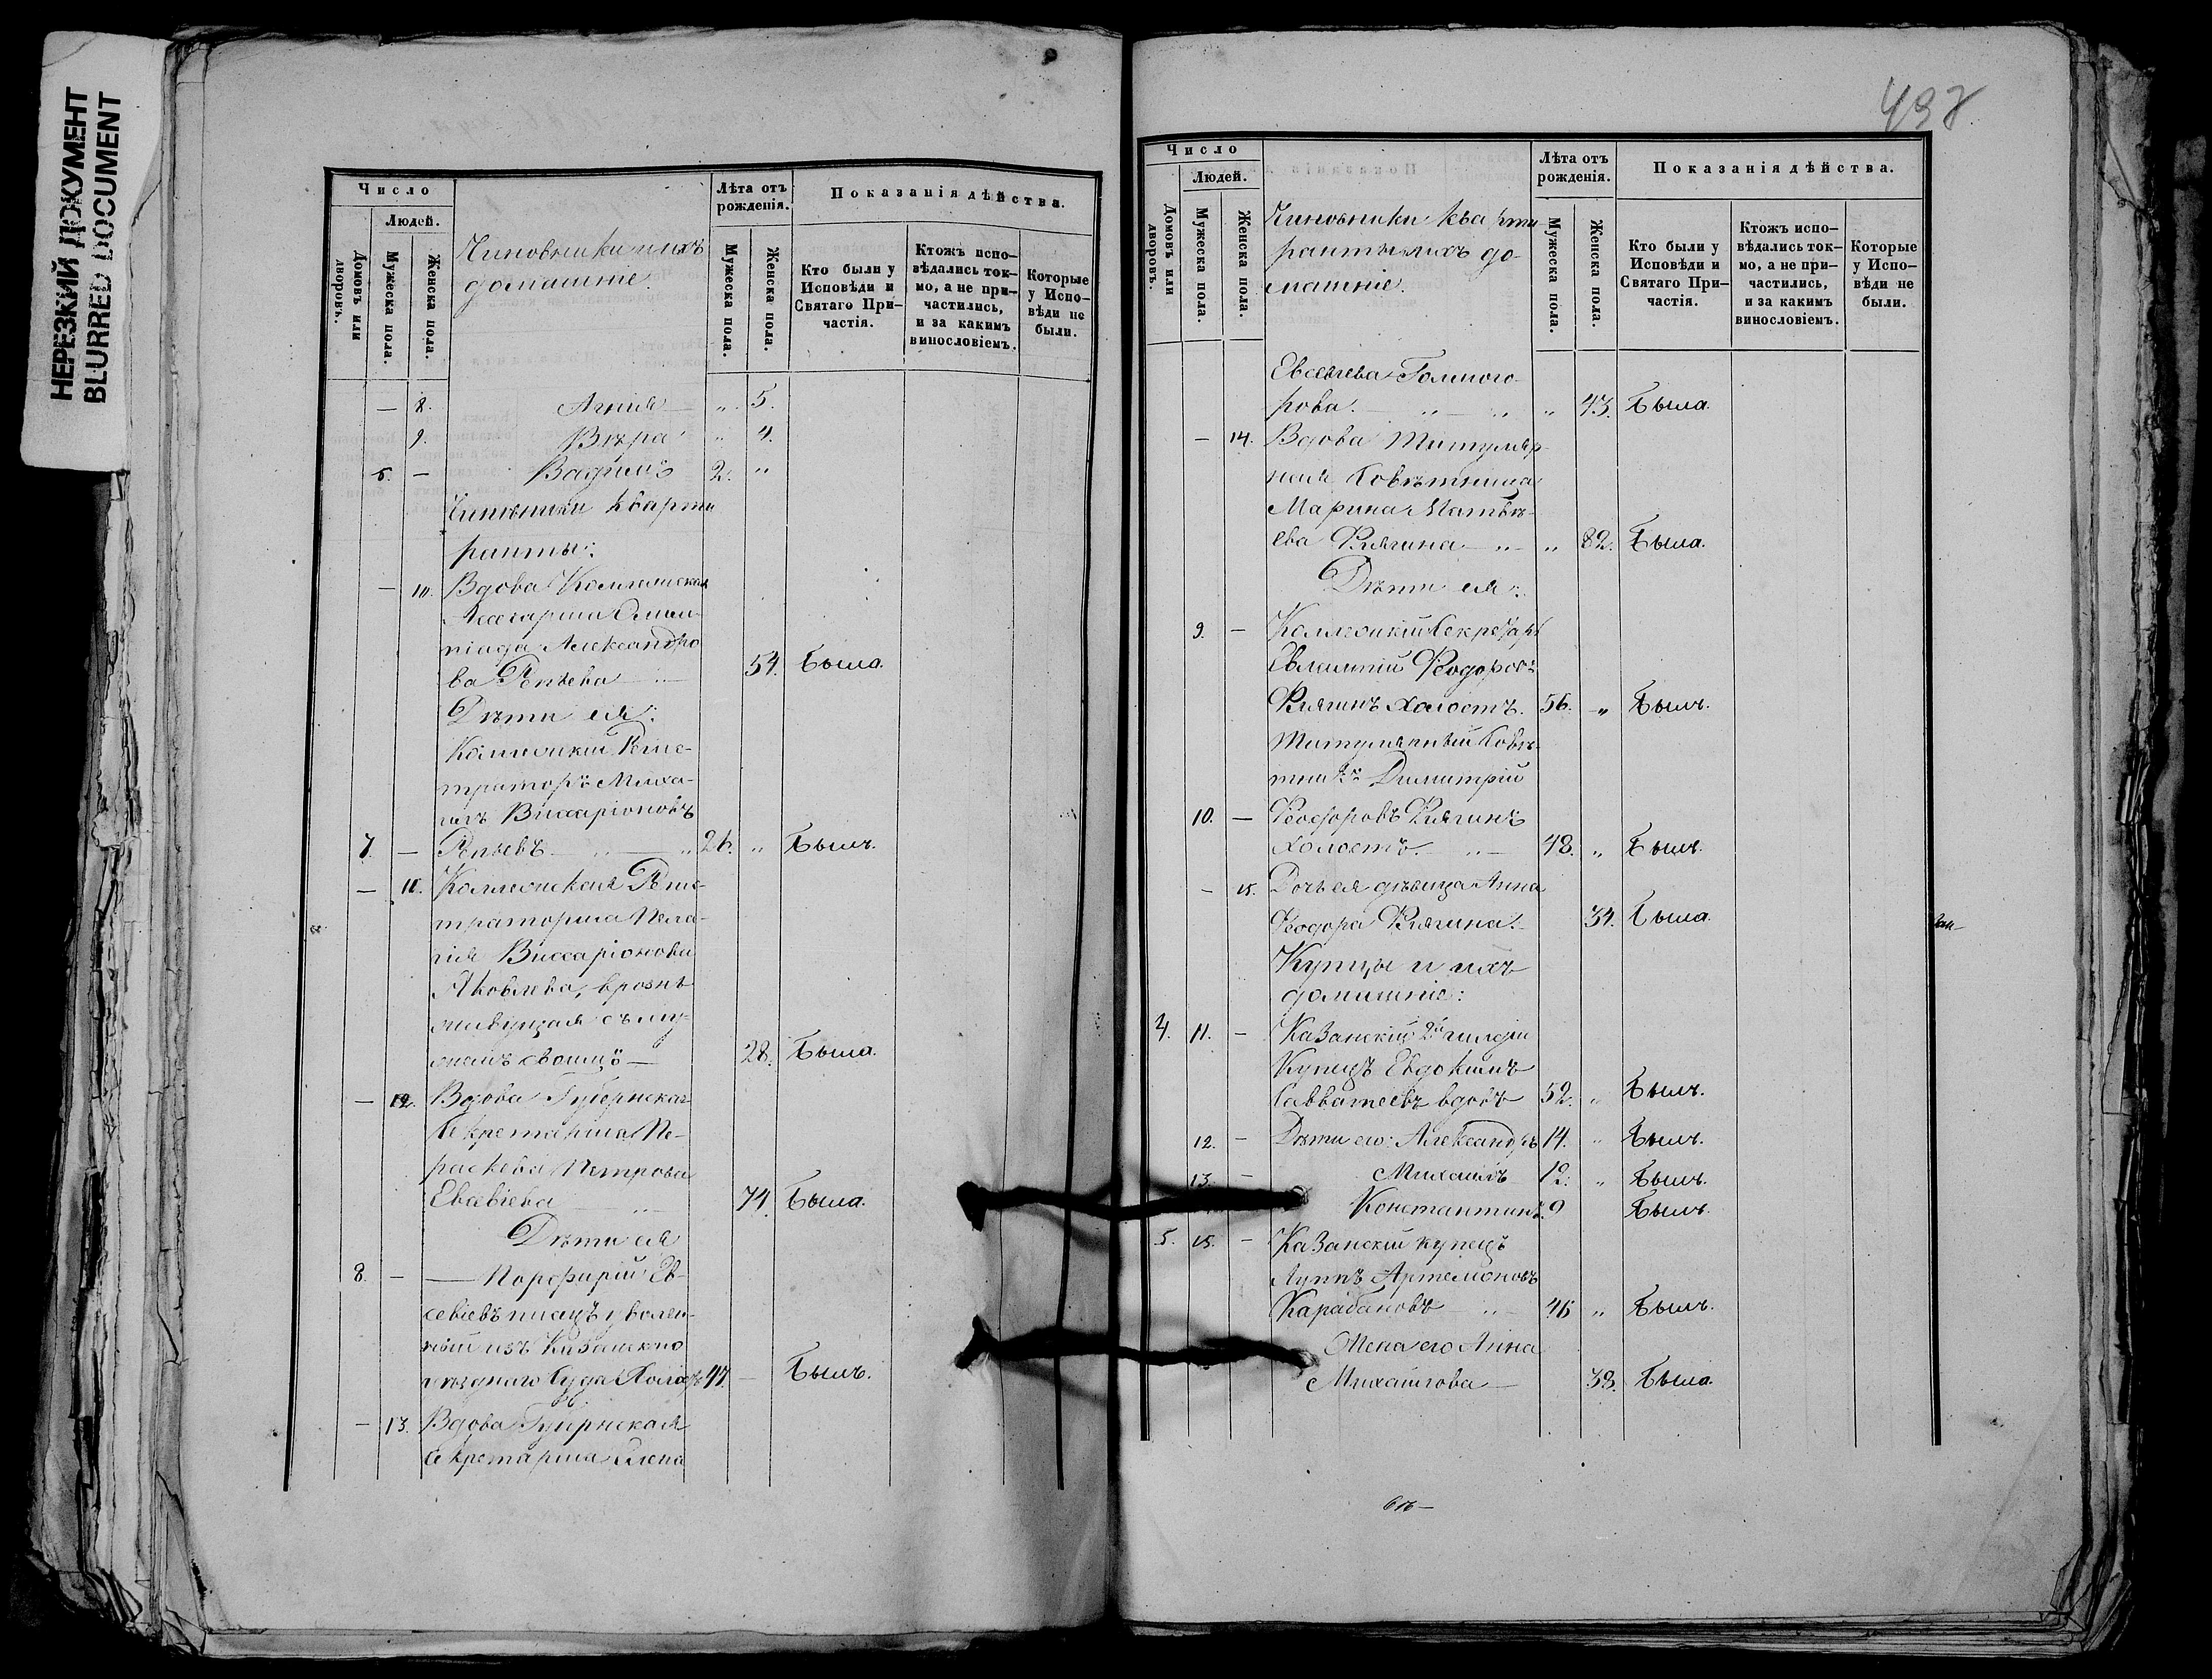 НЕРЕЗКИЙ ДОКУМЕНТ
BLURRED DOCUMENT
Число
Людей.
Домовъ или дворовъ.
Мужеска пола.
Женска пола.
Чиновники и ихъ
домашніе.
Лѣта отъ рожденія.
Мужеска пола.
Женска пола.
Показанія дѣйства.
Кто были у Исповѣди и Святаго При-частія.
Ктожъ испо-вѣдались ток-мо, а не при-частились, и за какимъ винословіемъ.
Которые у Испо-вѣди не были.
— 8. Агнія — „ 5.
9. Вѣра „ 4.
— Вадимъ 2. „
Чиновники кварти
ранты:
— 10. Вдова Коллежская
Ассесорша Олим-
піада Александро
ва Рѣпьева — 54. Была.
Дѣти ея:
Коллежскій Реги-
страторъ Миха-
илъ Виссаріоновъ
7. — Рѣпьевъ — „ — „ 26. „ Былъ.
— 11. Коллежская Реги-
страторша Пела-
гія Виссаріонова
Яковлева, врознь
живущая съ му-
жемъ своимъ — 28. Была.
— 12. Вдова Губернская
Секретарша Па-
раскева Петрова
Евсевіева — „ — 74. Была.
Дѣти ея
8. — — Порфирій Ев-
севіевъ писецъ уволен-
ный изъ Казанскаго
уѣзднаго Суда Холостъ 47. — Былъ.
— 13. Вдова Губернская
Секретарша Елена
498
Число
Людей.
Домовъ или дворовъ.
Мужеска пола.
Женска пола.
Чиновники кварти
ранты ихъ до-
машніе.
Лѣта отъ рожденія.
Мужеска пола.
Женска пола.
Показанія дѣйства.
Кто были у Исповѣди и Святаго При-частія.
Ктожъ испо-вѣдались ток-мо, а не при-частились, и за какимъ винословіемъ.
Которые у Испо-вѣди не были.
Евсевіева
рова. — „ — „ „ 43. Была.
— 14. Вдова Титуляр-
ная Совѣтница
Марина Матвѣ-
ева Княгина — „ — „ 82. Была.
Дѣти ея:
9. — Коллежскій Секретарь
Евлампій Феодоров
Княгинъ Холостъ. 56. „ Былъ.
Титулярный Совѣ-
тникъ Димитрій
10. — Феодоровъ Княгинъ
холостъ. — „ — 48. „ Былъ.
— 15. Дочь ея дѣвица Анна
Феодора Княгина. — 34. Была.
Купцы и ихъ
домашніе:
4. 11. — Казанскій 2й гильдіи
Купецъ Евдокимъ
Савватеевъ вдовъ 52. „ Былъ.
12. — Дѣти его: Александръ 14. „ Былъ.
13. — Михаилъ 12. „ Былъ.
Константинъ 9 Былъ.
5. 15. — Казанскій купецъ
Луппъ Артемоновъ
Карабановъ — „ — 46 „ Былъ.
Жена его Анна
Михаилова — 38. Была.